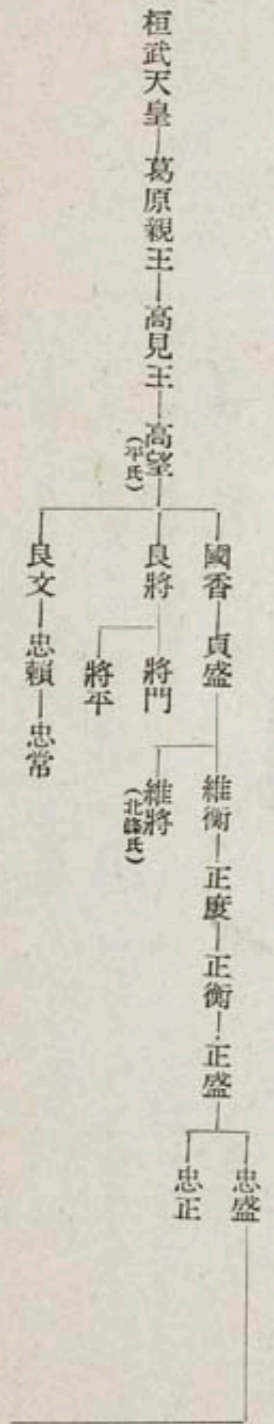 桓武天皇―葛原親王―高見王―高望
(平氏)
國香―貞盛
維衡―正度―正衡―正盛
忠盛
忠正
維將
(北條氏)
良將
將門
將平
良文―忠賴―忠常